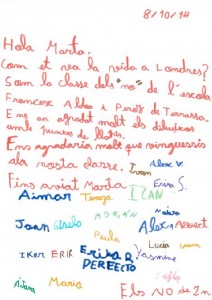 8/10/14
Hola Marta.
com et va la vida a Londres?
Som la classe dels "no" de l'escola
Francesc Aldea i Pérez de Terrassa.
Ens an agradat molt els dibuixos
amb fulles de
Ens agradaria molt que vinguessis
a la nostra classe.
Fins aviat Marta
Àlex V.
Erim S.
Aimar Tereza IZAN
Joan ADRIÀN Naira
Àlex Albert
Paula
Lucia
IKER ERIK Erika Yasmine
PERFECTO
Aitana Maria
Els NO de 2n